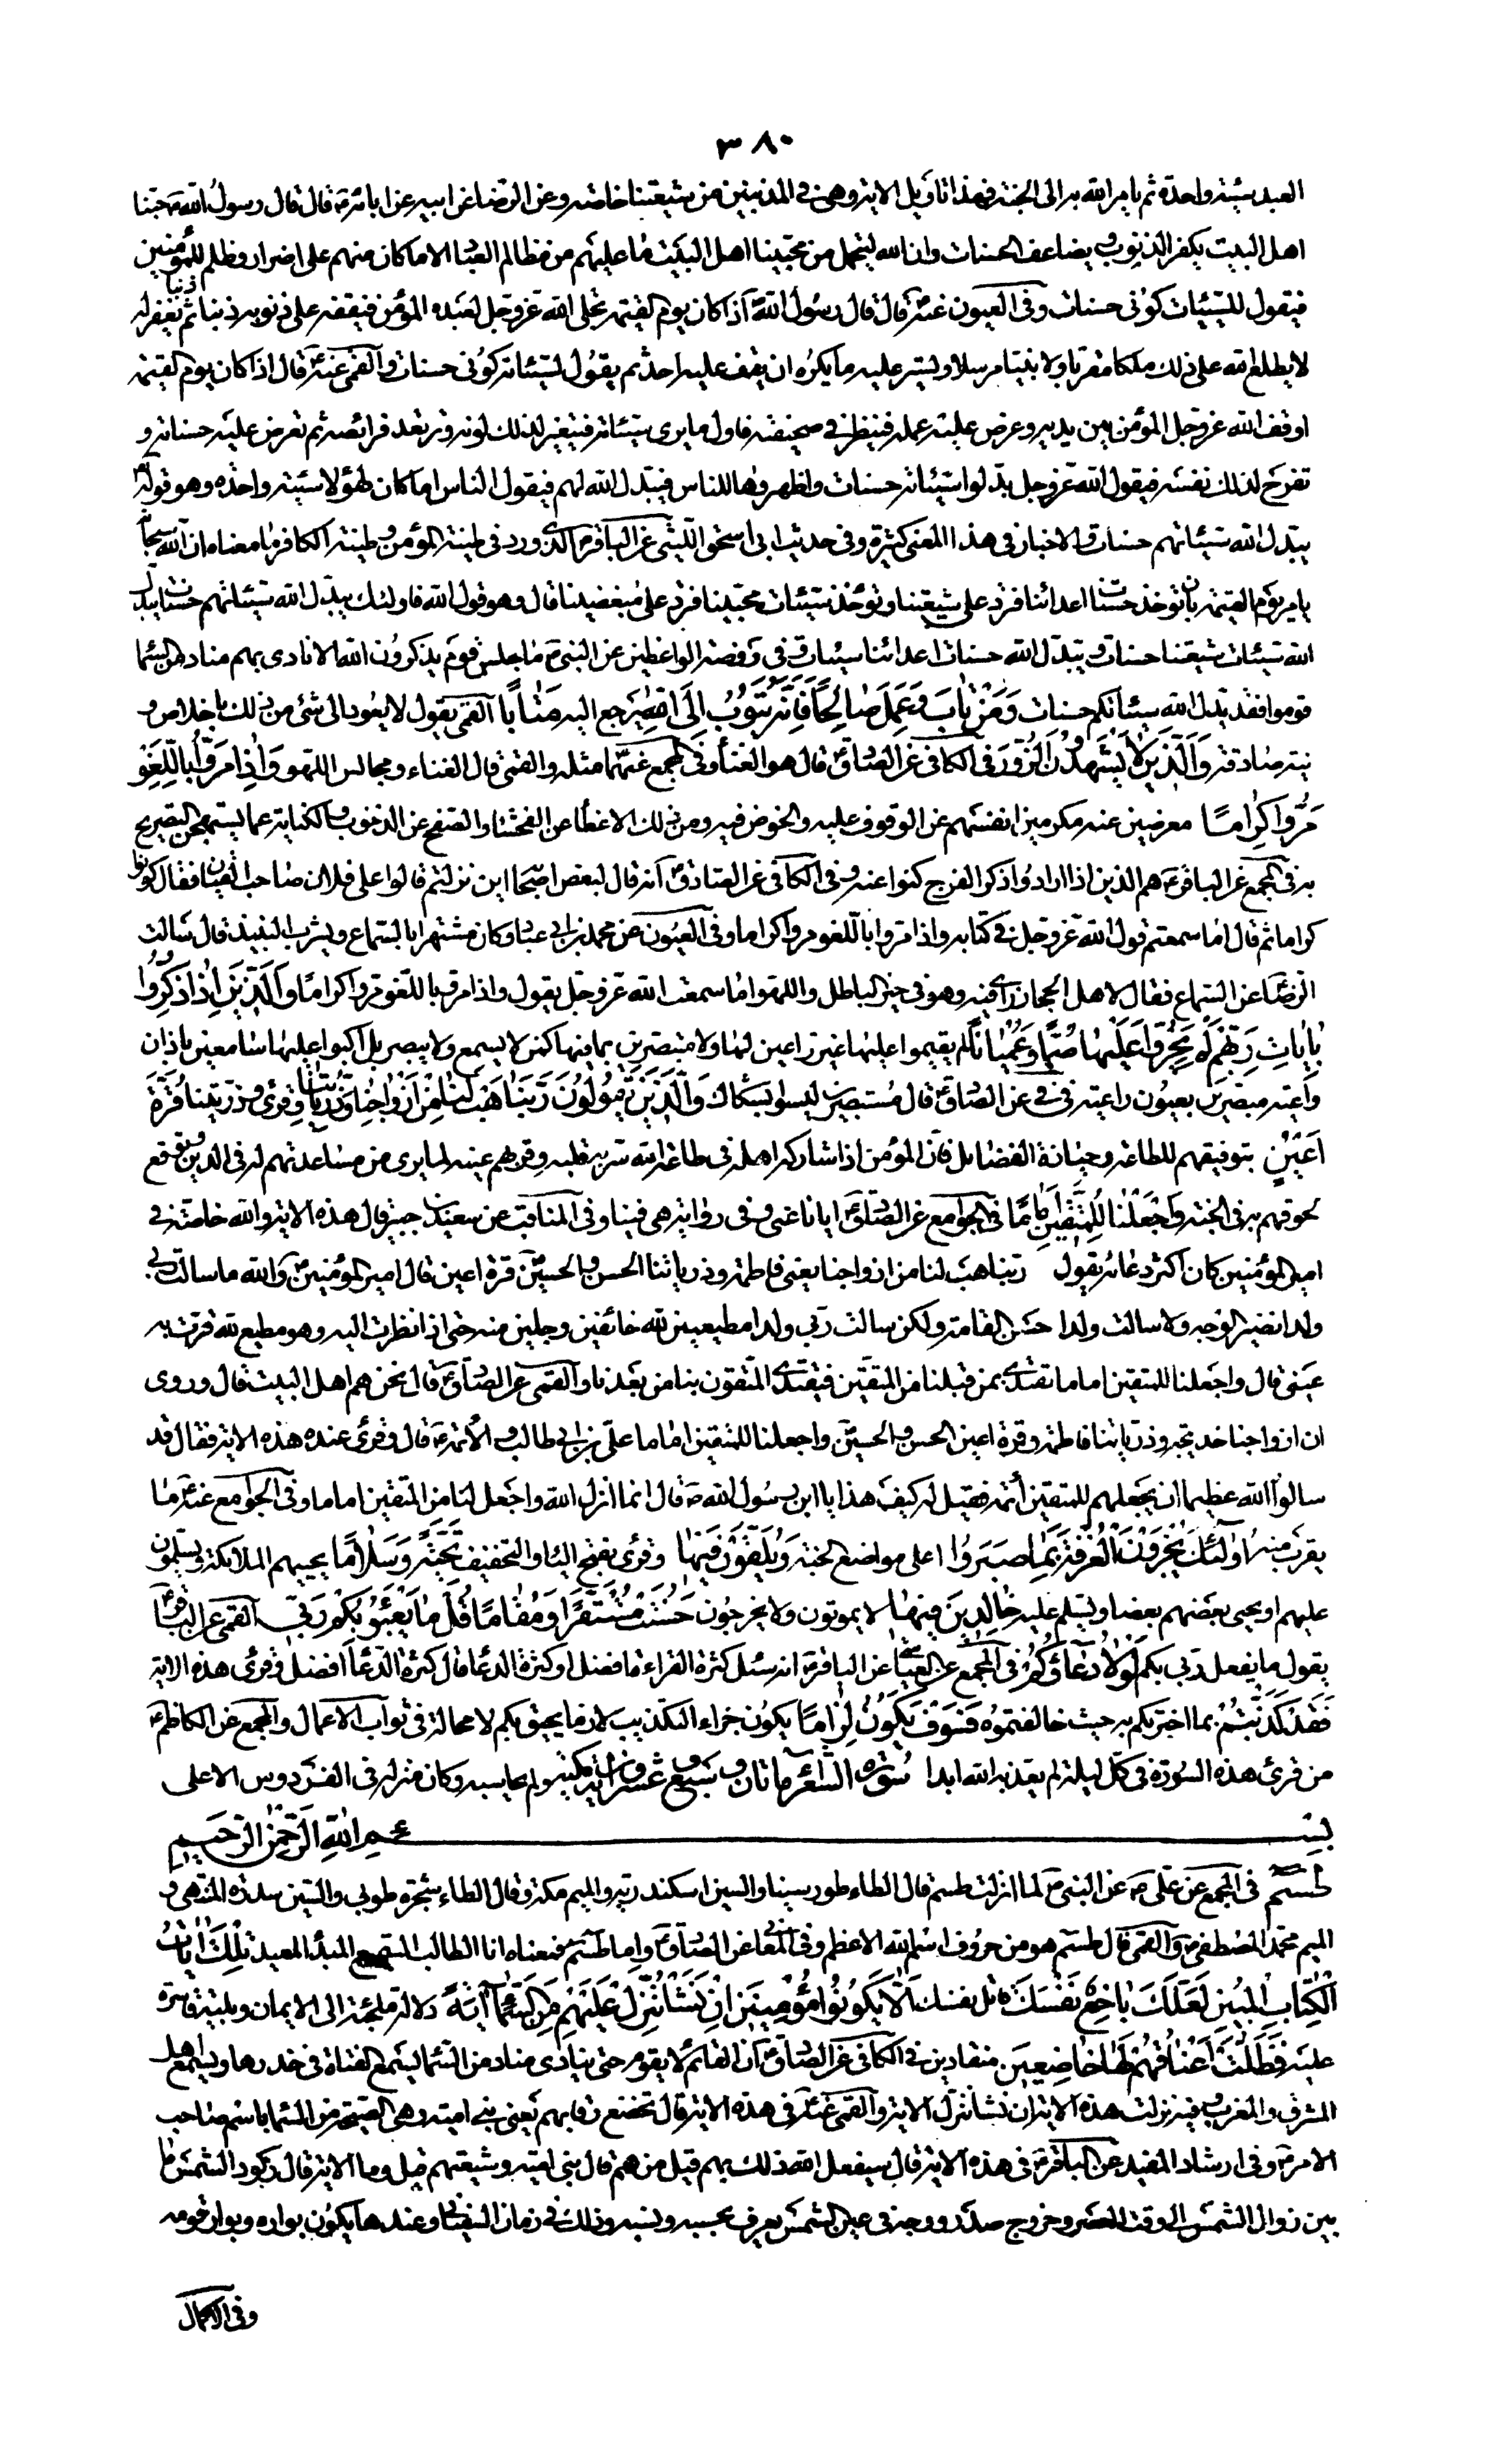 ٣٨٠
العبد سيّئة واحدة ثم يامر الله به الى الجنة فهذا تاويل الاية وهى فى المذنبين من شيعتنا خاصة وعن الرضا عن ابيه عن ابائه ع قال قال رسول الله ص حبنا
اهل البيت يكفر الذنوب و يضاعف الحسنات وان الله ليتحمل من محبينا اهل البيت ما عليهم من مظالم العباد الا ما كان منهم على اضرار وظلم للمؤمنين
فيقول للسيئات كونى حسنات وفى العيون عنه ع قال قال رسول الله ص اذا كان يوم القيمة تجلى الله عز وجل لعبده المؤمن فيقفه على ذنوبه ذنبا ذنبا ثم يغفر له
لا يطلع الله على ذلك ملكا مقربا ولا نبيا مرسلا و يستر عليه ما يكره ان يقف عليه احد ثم يقول لسيئاته كونى حسنات و القمى عنه ع قال اذا كان يوم القيمة
اوقف الله عز وجل المؤمن بين يديه وعرض عليه عمله فينظر فى صحيفته فاول ما يرى سيئاته فيتغير لذلك لونه وترتعد فرائصه ثم تعرض عليه حسناته و
تفرح لذلك نفسه فيقول الله عز وجل بدلوا سيئاته حسنات واظهروها للناس فيبدل الله لهم فيقول الناس اما كان لهؤلاء سيئة واحدة وهو قوله تعالى
يبدل الله سيئاتهم حسنات و الاخبار فى هذا المعنى كثيرة وفى حديث ابى اسحق الليثى عن الباقر ع الذى ورد فى طينة المؤمن و طينة الكافر ما معناه ان الله سبحانه
يامر يوم القيمة بان تؤخذ حسنات اعدائنا فترد على شيعتنا و تؤخذ سيئات محبينا فترد على مبغضينا قال وهو قول الله فاولئك يبدل الله سيئاتهم حسنات يبدل
الله سيئات شيعتنا حسنات و يبدل الله حسنات اعدائنا سيئات و فى روضة الواعظين عن النبى ص ما جلس قوم يذكرون الله الا نادى بهم مناد من السماء
قوموا فقد بدل الله سيئاتكم حسنات وَمَنْ تٰابَ وَعَمِلَ صٰالِحًا فَاِنَّهُ يَتُوبُ اِلَى اللهِ يرجع اليه مَتٰابًا القمى يقول لا يعود الى شئ من ذلك باخلاص و
نية صادقة وَالَّذِينَ لاٰ يَشْهَدُونَ الزُّورَ فى الكافى عن الصادق ع قال هو الغناء و فى المجمع عنهما مثله والقمى قال الغناء ومجالس اللهو وَاِذٰا مَرُّوا بِاللَّغْوِ
مَرُّوا كِرٰامًا معرضين عنه مكرمين انفسهم عن الوقوف عليه والخوض فيه ومن ذلك الاغضاء عن الفحشاء والصفح عن الذنوب والكناية عما يستهجن التصريح
به فى المجمع عن الباقر ع هم الذين اذا ارادوا ذكر الفرج كنوا عنه وفى الكافى عن الصادق ع انه قال لبعض اصحابه اين نزلتم قالوا على فلان صاحب القيان فقال كونوا
كراما ثم قال اما سمعتم قول الله عز وجل فى كتابه واذا مروا باللغو مروا كراما وفى العيون عن محمد بن ابى عباد وكان مشتهرا بالسماع وبشرب النبيذ قال سالت
الرضا ع عن السماع فقال لاهل الحجاز راى فيه وهو فى حيز الباطل واللهو اما سمعت الله عز وجل يقول واذا مروا باللغو مروا كراما وَالَّذِينَ اِذٰا ذُكِّرُوا
بِاٰيٰاتِ رَبِّهِمْ لَمْ يَخِرُّوا عَلَيْهٰا صُمًّا وَعُمْيٰانًا لم يقيموا عليها غير راعين لها ولا متبصرين بما فيها كمن لا يسمع ولا يبصر بل اكبوا عليها سامعين باذان
واعية مبصرين بعيون راعية فى عن الصادق ع قال مستبصرين ليسوا بشكاك وَالَّذِينَ يَقُولُونَ رَبَّنٰا هَبْ لَنٰا مِنْ اَزْوٰاجِنٰا وَذُرِّيّٰاتِنٰا وقرئ وذريتنا قُرَّةَ
اَعْيُنٍ بتوفيقهم للطاعة وحيازة الفضائل فان المؤمن اذا شاركه اهله فى طاعة الله سر به قلبه وقر بهم عينه لما يرى من مساعدتهم له فى الدين و توقع
لحوقهم به فى الجنة وَاجْعَلْنٰا لِلْمُتَّقِينَ اِمٰامًا فى الجوامع عن الصادق ع ايانا عنى و فى رواية هى فينا و فى المناقب عن سعيد بن جبير قال هذه الاية والله خاصة فى
امير المؤمنين كان اكثر دعائه يقول ربنا هب لنا من ازواجنا يعنى فاطمة وذرياتنا الحسن و الحسين قرة اعين قال امير المؤمنين ع والله ما سالت ربى
ولدا نضير الوجه ولا سالت ولدا حسن القامة ولكن سالت ربى ولدا مطيعين لله خائفين وجلين منه حتى اذا نظرت اليه وهو مطيع لله قرت به
عينى قال واجعلنا للمتقين اماما نقتدى بمن قبلنا من المتقين فيقتدى المتقون بنا من بعدنا و القمى عن الصادق ع قال نحن هم اهل البيت قال وروى
ان ازواجنا خديجة وذرياتنا فاطمة وقرة اعين الحسن و الحسين واجعلنا للمتقين اماما على بن ابى طالب و الائمة ع قال و قرئ عنده هذه الاية فقال قد
سالوا الله عظيما ان يجعلهم للمتقين ائمة فقيل له كيف هذا يا ابن رسول الله ص قال انما انزل الله واجعل لنا من المتقين اماما و فى الجوامع عنه ع ما
يقرب منه اُولٰئِكَ يُجْزَوْنَ الْغُرْفَةَ بِمٰا صَبَرُوا اعلى مواضع الجنة وَيُلَقَّوْنَ فِيهٰا وقرئ بفتح الياء و التخفيف تَحِيَّةً وَسَلاٰمًا يحييهم الملائكة و يسلمون
عليهم او يحيى بعضهم بعضا و يسلم عليه خٰالِدِينَ فِيهٰا لا يموتون ولا يخرجون حَسُنَتْ مُسْتَقَرًّا وَمُقٰامًا قُلْ مٰا يَعْبَؤُ بِكُمْ رَبِّى القمى عن الباقر ع
يقول ما يفعل ربى بكم لَوْلاٰ دُعٰاؤُكُمْ فى المجمع عن العياشى عن الباقر ع انه سئل كثرة القراءة افضل او كثرة الدعاء قال كثرة الدعاء افضل و قرئ هذه الاية
فَقَدْ كَذَّبْتُمْ بما اخبرتكم به حيث خالفتموه فَسَوْفَ يَكُونُ لِزٰامًا يكون جزاء التكذيب لازما يحيق بكم لا محالة فى ثواب الاعمال و المجمع عن الكاظم ع
من قرئ هذه السورة فى كل ليلة لم يعذبه الله ابدا ولم يحاسبه وكان منزله فى الفردوس الاعلى سورة الشعراء مائتان و سبع و عشرون اية مكية
بِسْمِ اللهِ الرَّحْمٰنِ الرَّحِيمِ
طٰسٓمٓ فى المجمع عن على ع عن النبى ص لما انزلت طسم قال الطاء طور سينا والسين اسكندرية والميم مكة و قال الطاء شجرة طوبى والسين سدرة المنتهى و
الميم محمد المصطفى ص و القمى قال طسم هو من حروف اسم الله الاعظم وفى المعانى عن الصادق ع واما طسم فمعناه انا الطالب السميع المبدأ المعيد تِلْكَ اٰيٰاتُ
الْكِتٰابِ الْمُبِينِ لَعَلَّكَ بٰاخِعٌ نَفْسَكَ قاتل نفسك اَلاّٰ يَكُونُوا مُؤْمِنِينَ اِنْ نَشَأْ نُنَزِّلْ عَلَيْهِمْ مِنَ السَّمٰاءِ اٰيَةً دلالة ملجئة الى الايمان وبلية قاسرة
عليه فَظَلَّتْ اَعْنٰاقُهُمْ لَهٰا خٰاضِعِينَ منقادين فى الكافى عن الصادق ع ان القائم لا يقوم حتى ينادى مناد من السماء يسمع الفتاة فى خدرها و يسمع اهل
المشرق والمغرب و فيه نزلت هذه الاية ان نشا ننزل الاية و القمى عنه ع فى هذه الاية قال تخضع رقابهم يعنى بنى امية وهى الصيحة من السماء باسم صاحب
الامر ع و فى ارشاد المفيد عن الباقر ع فى هذه الاية قال سيفعل الله ذلك بهم قيل من هم قال بنى امية وشيعتهم قيل وما الاية قال ركود الشمس ما
بين زوال الشمس الى وقت العصر وخروج صدر و وجه فى عين الشمس يعرف بحسبه ونسبه و ذلك فى زمان السفيانى وعندها يكون بواره وبوار قومه
وفى الاكمال